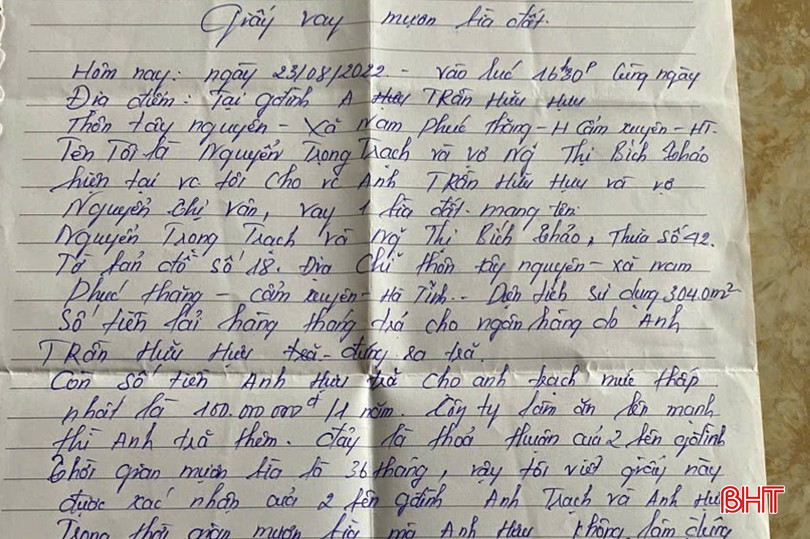 Giấy vay mượn bìa đất.
Hôm nay: ngày 23/08/2022 - vào lúc 16h30p Cùng ngày
Địa điểm: Tại gđình A Hựu TRần Hữu Hựu
Thôn tây nguyên - Xã Nam Phúc thăng - H Cẩm xuyên - HT.
Tên Tôi là Nguyễn Trọng Trạch và vợ Ng Thị Bích thảo
hiện tại vc tôi Cho vc Anh TRần Hữu Hựu và vợ
Nguyễn thị vân, vay 1 bìa đất. mang tên.
Nguyễn Trọng Trạch và Ng Thị Bích thảo, Thửa số 42.
Tờ bản đồ số 18. Địa Chỉ thôn tây nguyên - xã nam
Phúc thăng - cẩm xuyên - Hà Tĩnh. - Diện tích sử dụng 304.0m²
Số tiền lãi hàng tháng trả cho ngân hàng do Anh
TRần Hữu Hựu trả - đứng ra trả.
Còn số tiền Anh Hựu trả cho anh trạch mức thấp
nhất là 100.000.000đ/1 năm. Công ty làm ăn lên mạnh
thì Anh trả thêm. đây là thoả thuận của 2 bên gđình
thời gian mượn bìa là 36 tháng, vậy tôi viết giấy này
được xác nhận của 2 bên gđình Anh Trạch và Anh
Trong thời gian mượn bìa mà Anh Hựu không làm đúng
BHT